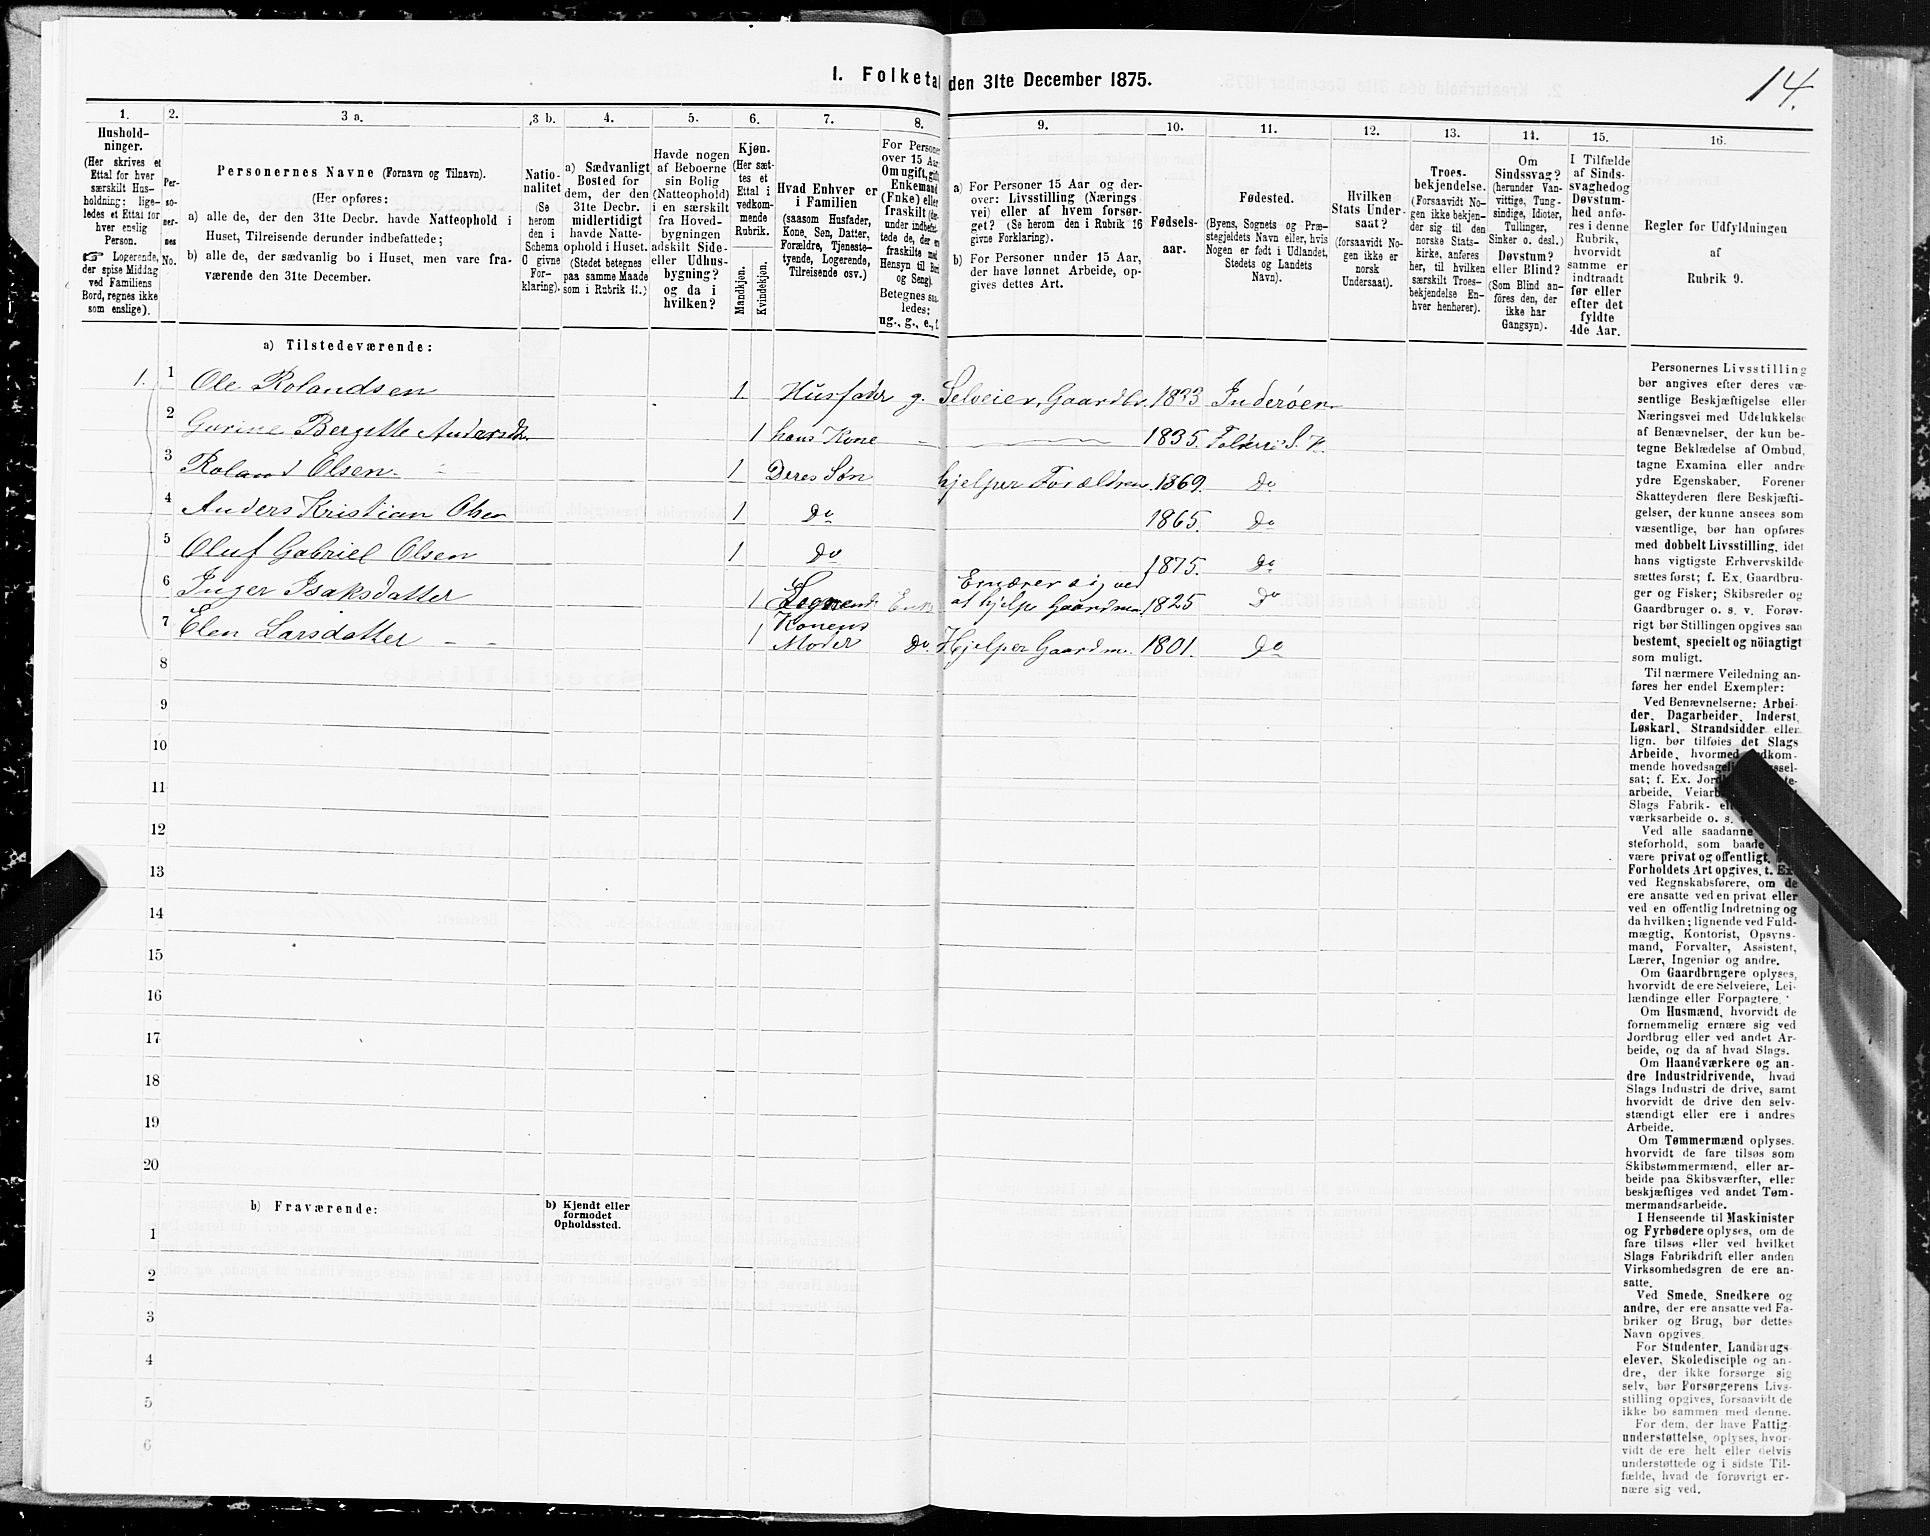 1. Folketal den 31te December 1875.
14.
1.
Hushold-
ninger.
(Her skrives et
Ettal for hver
særskilt Hus-
holdning; lige-
ledes et Ettal for
hver enslig
Person.
Logerende,
der spise Middag
ved Familiens
Bord, regnes ikke
som enslige).
2.
Per-
so-
ner-
nes
No.
3 a.
Personernes Navne (Fornavn og Tilnavn).
(Her opføres:
a) alle de, der den 31te Decbr. havde Natteophold i
Huset, Tilreisende derunder indbefattede;
b) alle de, der sædvanlig bo i Huset, men vare fra-
værende den 31te December.
3 b.
Natio-
nalitet
(Se
herom
den i
Schema
C givne
For-
klaring).
4.
a) Sædvanligt
Bosted for
dem, der den
31te Decbr.
midlertidigt
havde Natte-
ophold i Huset.
(Stedet betegnes
paa samme Maade
som i Rubrik 11.)
5.
Havde nogen
af Beboerne
sin Bolig
(Natteophold)
i en særskilt
fra Hoved-
bygningen
adskilt Side-
eller Udhus-
bygning?
og da i
hvilken?
6.
Kjøn.
(Her sæt-
tes et
Ettal i
vedkom-
mende
Rubrik.
Mandkjøn.
Kvindekjøn.
7.
Hvad Enhver er
i Familien
(saasom Husfader,
Kone, Søn, Datter,
Forældre, Tjeneste-
tyende, Logerende,
Tilreisende osv.)
8.
For Personer
over 15 Aar:
Om ugift, gift,
Enkemand
(Enke) eller
fraskilt
Hensyn til Bord
og Seng).
Betegnes saa-
ledes:
ug., g., e., f.
9.
a) For Personer 15 Aar og der-
over: Livsstilling (Nærings-
vei) eller af hvem forsør-
get? (Se herom den i Rubrik 16
givne Forklaring).
b) For Personer under 15 Aar,
der have lønnet Arbeide, op-
gives dettes Art.
10.
Fødsels-
aar.
11.
Fødested.
(Byens, Sognets og Præ-
stegjeldets Navn eller, hvis
Nogen er født i Udlandet,
Stedets og Landets
Navn).
12.
Hvilken
Stats Under-
saat?
(forsaavidt No-
gen ikke er
norsk
Undersaat).
13.
Troes-
bekjendelse.
(Forsaavidt No-
gen ikke bekjen-
der sig til den
norske Stats-
kirke, anføres
her, til hvilken
særskilt Troes-
bekjendelse En-
hver henhører).
14.
Om
Sindssvag?
(herunder Van-
vittige, Tung-
sindige, Idioter,
Tullinger,
Sinker o. desl.)
Døvstum?
eller Blind?
(Som Blind an-
føres den, der
ikke har
Gangsyn).
15.
I Tilfælde
af Sinds-
svaghed og
Døvstum-
hed anfø-
res i denne
Rubrik,
hvorvidt
samme er
indtraadt
før eller
efter det
fyldte
4de Aar.
16.
Regler for Udfyldningen
af
Rubrik 9.
a) Tilstedeværende:
1. 1 Ole Rolandsen 1 Husfader g. Selveier, Gaardbr. 1833 Inderøen
2 Gurine Bergitte Andersdtr 1 hans Kone 1835.
3 Roland Olsen 1 Deres Søn hjelper Forældrene 1869. Do
4 Anders Kristian Olsen 1 Do 1865. Do
5 Oluf Gabriel Olsen 1 Do 1875. Do
6 Inger Isaksdatter 1 Logerende Enke Ernærer sig ved
at hjelpe Gaardmen. 1825 Do
7 Elen Larsdatter 1 Konens
Moder Do. Hjelper Gaardm. 1801. Do
8
9
10
11
12
13
14
15
16
17
18
19
20
b) Fraværende:
b) Kjendt eller
formodet
Opholdssted.
1
2
3
4
5
6
Personernes Livsstilling
bør angives efter deres væ-
sentlige Beskjæftigelse eller
Næringsvei med Udelukkelse
af Benævnelser, der kun be-
tegne Beklædelse af Ombud,
tagne Examina eller andre
ydre Egenskaber. Forener
Skatteyderen flere Beskjæfti-
gelser, der kunne ansees som
væsentlige, bør han opføres
med dobbelt Livsstilling, idet
hans vigtigste Erhvervskilde
sættes først; f. Ex. Gaardbru-
ger og Fisker; Skibsreder og
Gaardbruger o. s. v. Forøv-
rigt bør Stillingen opgives saa
bestemt, specielt og nöiagtigt
som muligt.
Til nærmere Veiledning an-
føres her endel Exempler:
Ved Benævnelserne: Arbei-
der, Dagarbeider, Inderst,
Løskarl, Strandsidder eller
lign. bør tilføies det Slags
Arbeide, hvormed vedkom-
mende hovedsagelig
sat; f. Ex.
arbeide,
Slags Fabrik-
værksarbeide o. s. v.
Ved alle saadanne
steforhold, som baade
være privat og offentligt,
Forholdets Art opgives, t. Ex.
ved Regnskabsførere, om de
ere ansatte ved en privat eller
ved en offentlig Indretning og
da hvilken; lignende ved Fuld-
mægtig, Kontorist, Opsyns-
mand, Forvalter, Assistent,
Lærer, Ingeniør og andre.
Om Gaardbrugere oplyses,
hvorvidt de ere Selveiere, Lei-
lændinge eller Forpagtere.
Om Husmænd, hvorvidt de
fornemmelig ernære sig ved
Jordbrug eller ved andet Ar-
beide, og da af hvad Slags.
Om Haandværkere og an-
dre Industridrivende, hvad
Slags Industri de drive, samt
hvorvidt de drive den selv-
stændigt eller ere i andres
Arbeide.
Om Tømmermænd oplyses.
hvorvidt de fare tilsøs som
Skibstømmermænd, eller ar-
beide paa Skibsværfter, eller
beskjæftiges ved andet Tøm-
mermandsarbeide.
I Henseende til Maskinister
og Fyrbødere oplyses, om de
fare tilsøs eller ved hvilket
Slags Fabrikdrift eller anden
Virksomhedsgren de ere an-
satte.
Ved Smede, Snedkere og
andre, der ere ansatte ved Fa-
briker og Brug, bør dettes
Navn opgives.
For Studenter, Landbrugs-
elever, Skoledisciple og an-
dre, der ikke forsørge sig
selv, bør Forsørgerens Livs-
stilling opgives, forsaavidt de
ikke bo sammen med denne.
For dem, der have Fattig-
understøttelse, oplyses, hvor-
vidt de ere helt eller delvis
understøttede og i sidste Til-
fælde, hvad de forøvrigt er-
nære sig ved.